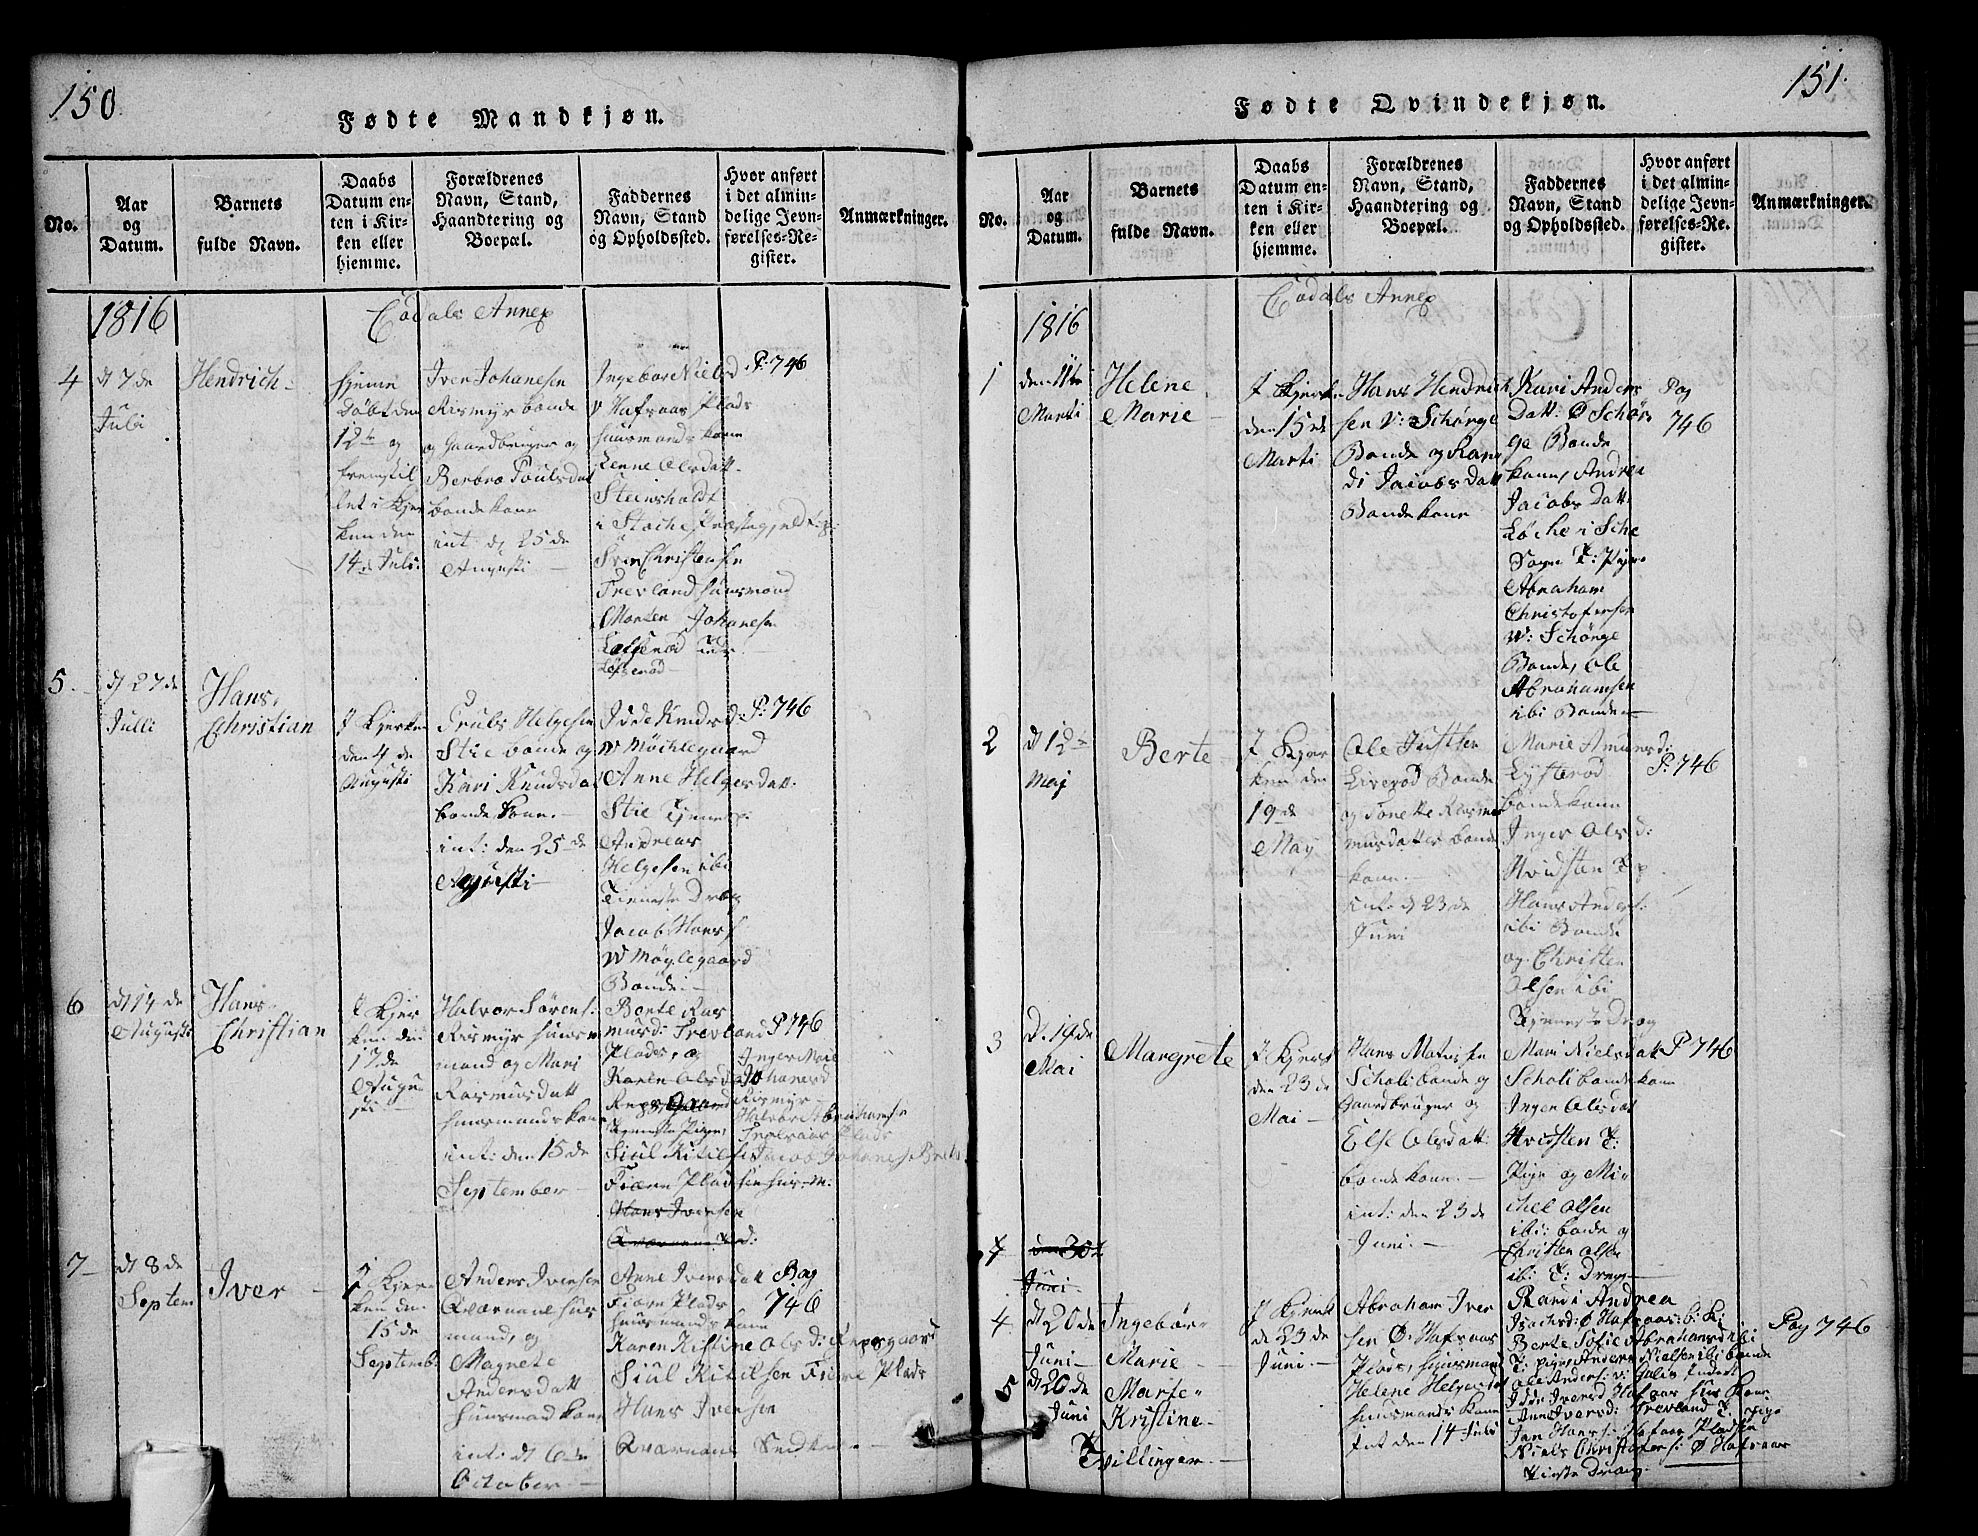 150
Fødte Mandkjøn.
No.
Aar
og
Datum.
Barnets
fulde Navn.
Daabs
Datum en-
ten i Kir-
ken eller
hjemme.
Forældrenes
Navn, Stand,
Haandtering og
Boepæl.
Faddernes
Navn, Stand
og Opholdssted.
Hvor anført
i det almin-
delige Jevn-
førelses-Re-
gister.
Anmærkninger.
1816
Eødals Annex
4
d 7de
Juli
Hendrich
hjemme
døbt den
12te og
fremstil
let i Kjer
ken den
14d Juli
Iver Johanesen
Rismyr bonde
og Gaardbruger og
Berbro Poulsdat
bondekone
int d 25de
Augusti
Ingebor Nielsd
v Hafraas Plads
huusmands kone
Lenne Olsdatt
Steinsholdt
i Stoche Præstegjeld
Iver Christensen
Trevland huusmand
Morten Johanesen
Løfsrød
P: 746
5.
d 27de
Julli
Hans
Christian
I Kjerken
den 4de
Augusti
Truls Helgesen
Stie bonde og
Kari Knudsdat
bonde kone.
int: den 25de
Agusti
Idde Knudsd
W Möchlegaard
Anne Helgesdatt:
Stie Tjeneste p:
Andreas
Helgesen ibi
Tieneste Dreng
Jacob Hans
W Møglegaard
Bonde
P: 746
6
d 14de
Augusti
Hans
Christian
I Kjer
ken den
17de
Augu
sti
Halvor Sørens:
Rismyr huus
mand og Mari
Rasmusdatt
huusmands kone
int: den 15de
September
Berte Ras
musd: Trevland
Plads, og
Karen Olsd
Reps Gaard
Tjeneste Pige,
Siul Kitilsen
Fiære Plads
Hans Iversen
Qværnene
P 746
Inger Marie
Johanesd
Rismyr
Halvor Abrahamsen
7
d 8de
Septem
Iver
I Kjer
ken den
15de
Septemb:
Anders Iversen
Qværnene huus
mand, og
Magnete
Andersdatt
huusmand kone
int: d 6de
October
Anne Iversdatt
Fiære Plads
huusmands kone
Karen Kistine Olsd: Repsgaard
Siul Kitilsen Fiære Plads
Hans Iversen
Qværnene
Pag
746
151.
Fødte Qvindekjøn.
No.
Aar
og
Datum.
Barnets
fulde Navn.
Daabs
Datum en-
ten i Kir-
ken eller
hjemme.
Forældrenes
Navn, Stand,
Haandtering og
Boepæl.
Faddernes
Navn, Stand
og Opholdssted.
Hvor anført
i det almin-
delige Jevn-
førelses-Re-
gister.
Anmærkninger.
Eødals Annex
1816
1
den 11te
Marti
Helene
Marie
I Kjerke
den 15de
Marti
Hans Hendrich
sen V: Schørge
Bonde og Ran
di Jacobsdatt
Bondekone
Kari Anders
Datt: Ø Schør
ge Bonde
kone, Andrea
Jacobs Datt
Løche i Sche
Sogn T: Pige
Abraham
Christofersen
W: Schörge
Bonde, Ole
Abrahamsen
ibi Bonde
Pag
746
2
d 12te
Maj
Berte
I Kjer
ken den
19de
May
Ole Justsen
Liverød Bonde
og Tonette Rasmus
musdatter bonde
kone.
int: d 23de
Juni
Marie Amunsd:
Lysterød
bondekone
Inger Olsd:
Hvidsten T p
Hans Anders:
ibi Bonde
og Christen
Olsen ibi
Tjeneste Dreng
P: 746
3
D. 19de
Mai
Margrete
I Kjerk
den 23de
Mai
Hans Matisen
Scholi bonde og
Gaardbruger og
Else Olsdatt:
bonde kone.
int: den 23de
Juni.
Mari Nielsdatt
Scholi bondekone
Inger Olsdat
Hvidsten T:
Pige og Mi
chel Olsen
ibi: bonde og
Christen Olsen
ibi: T: Dreng
P 746
4
den 30te
Juni
4
d 20de
Juni
Ingebör
Marie
I Kjerk
de 23de
Juni.
Abraham Iver
sen Ø: Hafraas
Plads, huusmand
Helene Helgesdat
huusmands kone
Int den 14 Juli
Randi Andrea
Isachsd: Ø Hafraas:
Berte Sofie Abrahamsd ibi
T: pige, Anders Nielsen ibi bonde
Idde Iversd Hafraas huus kone
Anne Iversd: Trevland T. pige
Jan Hans: Hafraas Pladsen
Niels Christofers: Ø Hafraas
Pag 746
5
d 20de
Juni
Marte
Kristine
Tvillinger.